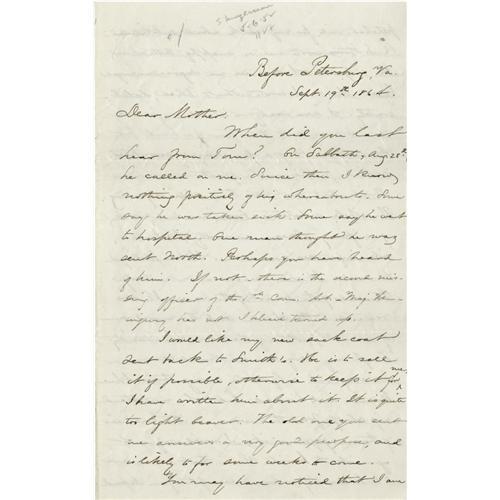 Before Petersburg, Va.
Sept. 19th 1864.
Dear Mother,
When did you last
hear from Tom? On Sabbath, Aug. 28th
he called on me. Since then I know
nothing positively of his whereabouts. Some
say he was taken sick. Some say he went
to hospital. One man thought he was
sent North. Perhaps you have heard
of him. If not there is the second miss-
ing officer of the 1st Conn. Art. Maj.
has not I believe turned up.
I would like my new sack coat
sent back to Smith's. He is to sell
it if possible, otherwise to keep it for me,
I have written him about it. It is quite
too light . The old one you sent
me answers a very good purpose, and
is likely to for some weeks to come.
You may have noticed that I am